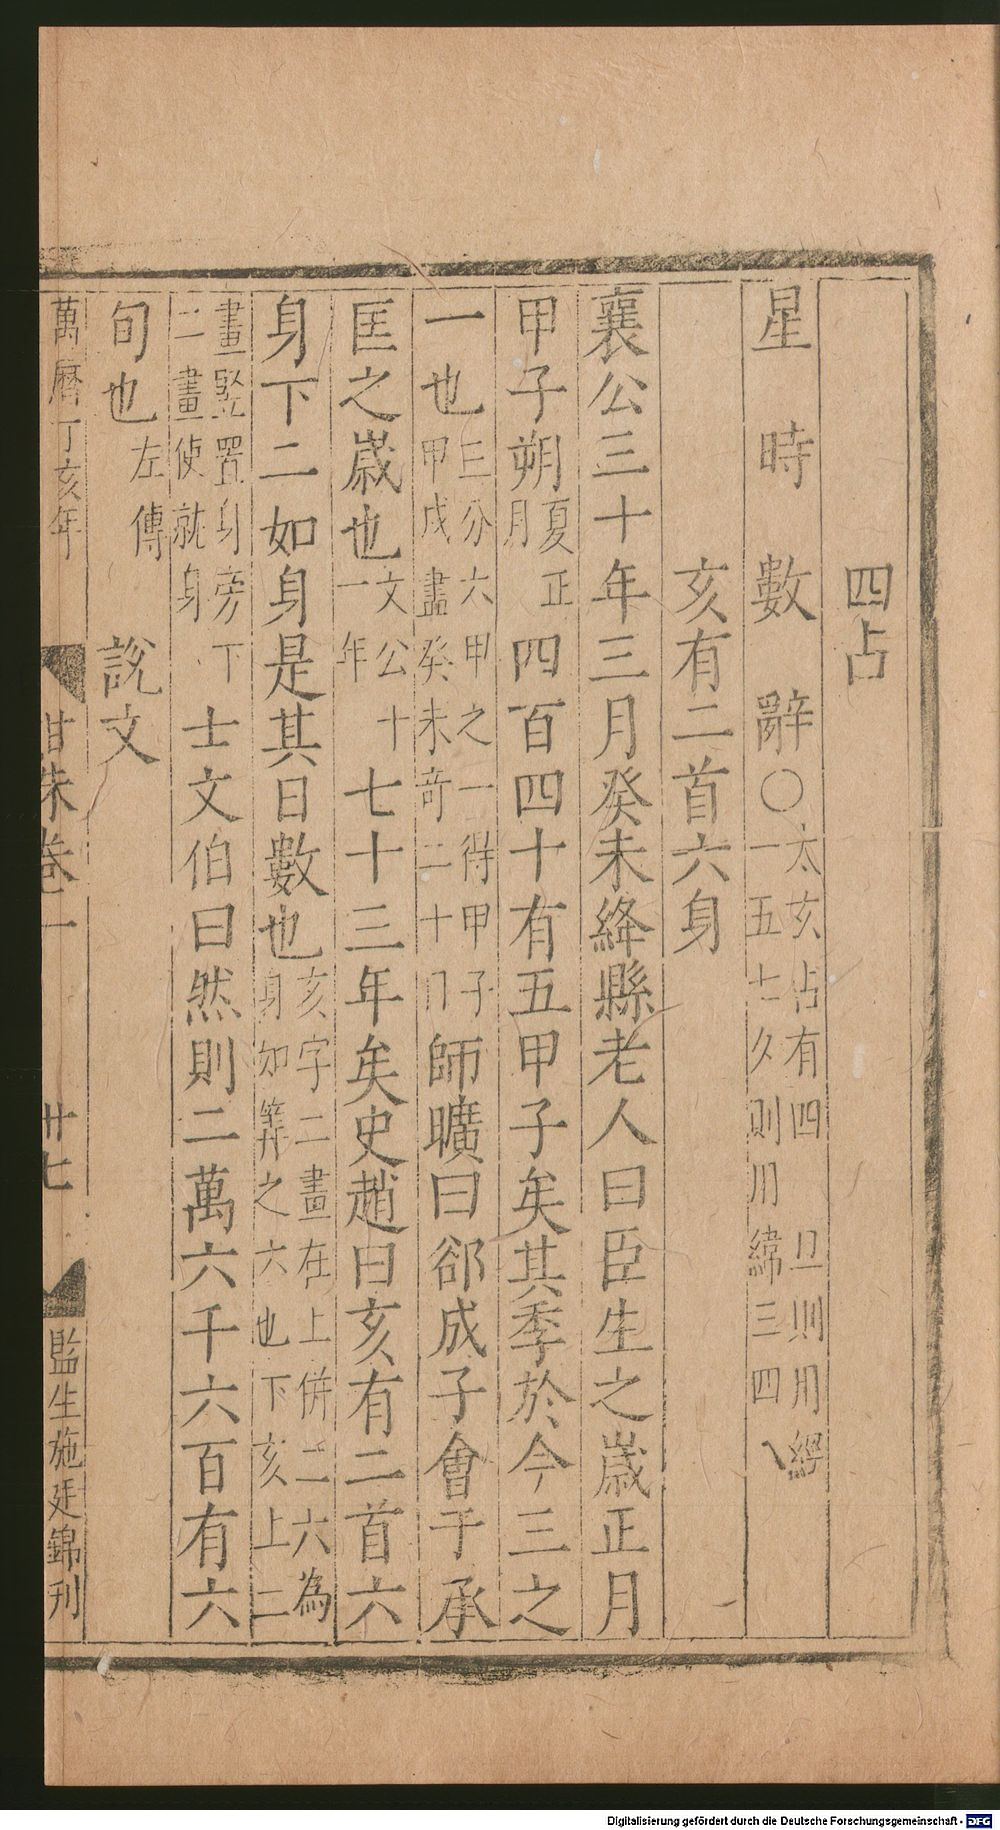 四占
星　時　數　辭〇太亥占有四　旦則用經
一五七久則用緯三四八
亥有二首六身
襄公三十年三月癸未絳縣老人曰臣生之歲正月
甲子朔夏正月四百四十有五甲子矣其季於今三之
一也三分六甲之一得甲子甲戌盡癸未奇二十日師曠曰郤成子會于承
匡之歲也文公十一年七十三年矣史趙曰亥有二首六
身下二如身是其日數也亥字二畫在上併二六為身如筭之六也下亥上二
畫竪置身旁下二畫使就身士文伯曰然則二萬六千六百有六
旬也左傳　說文
萬曆丁亥年　甘朱卷一　廿七　監生施廷錦刊
Digitalisierung gefördert durch die Deutsche Forschungsgemeinschaft - DFG